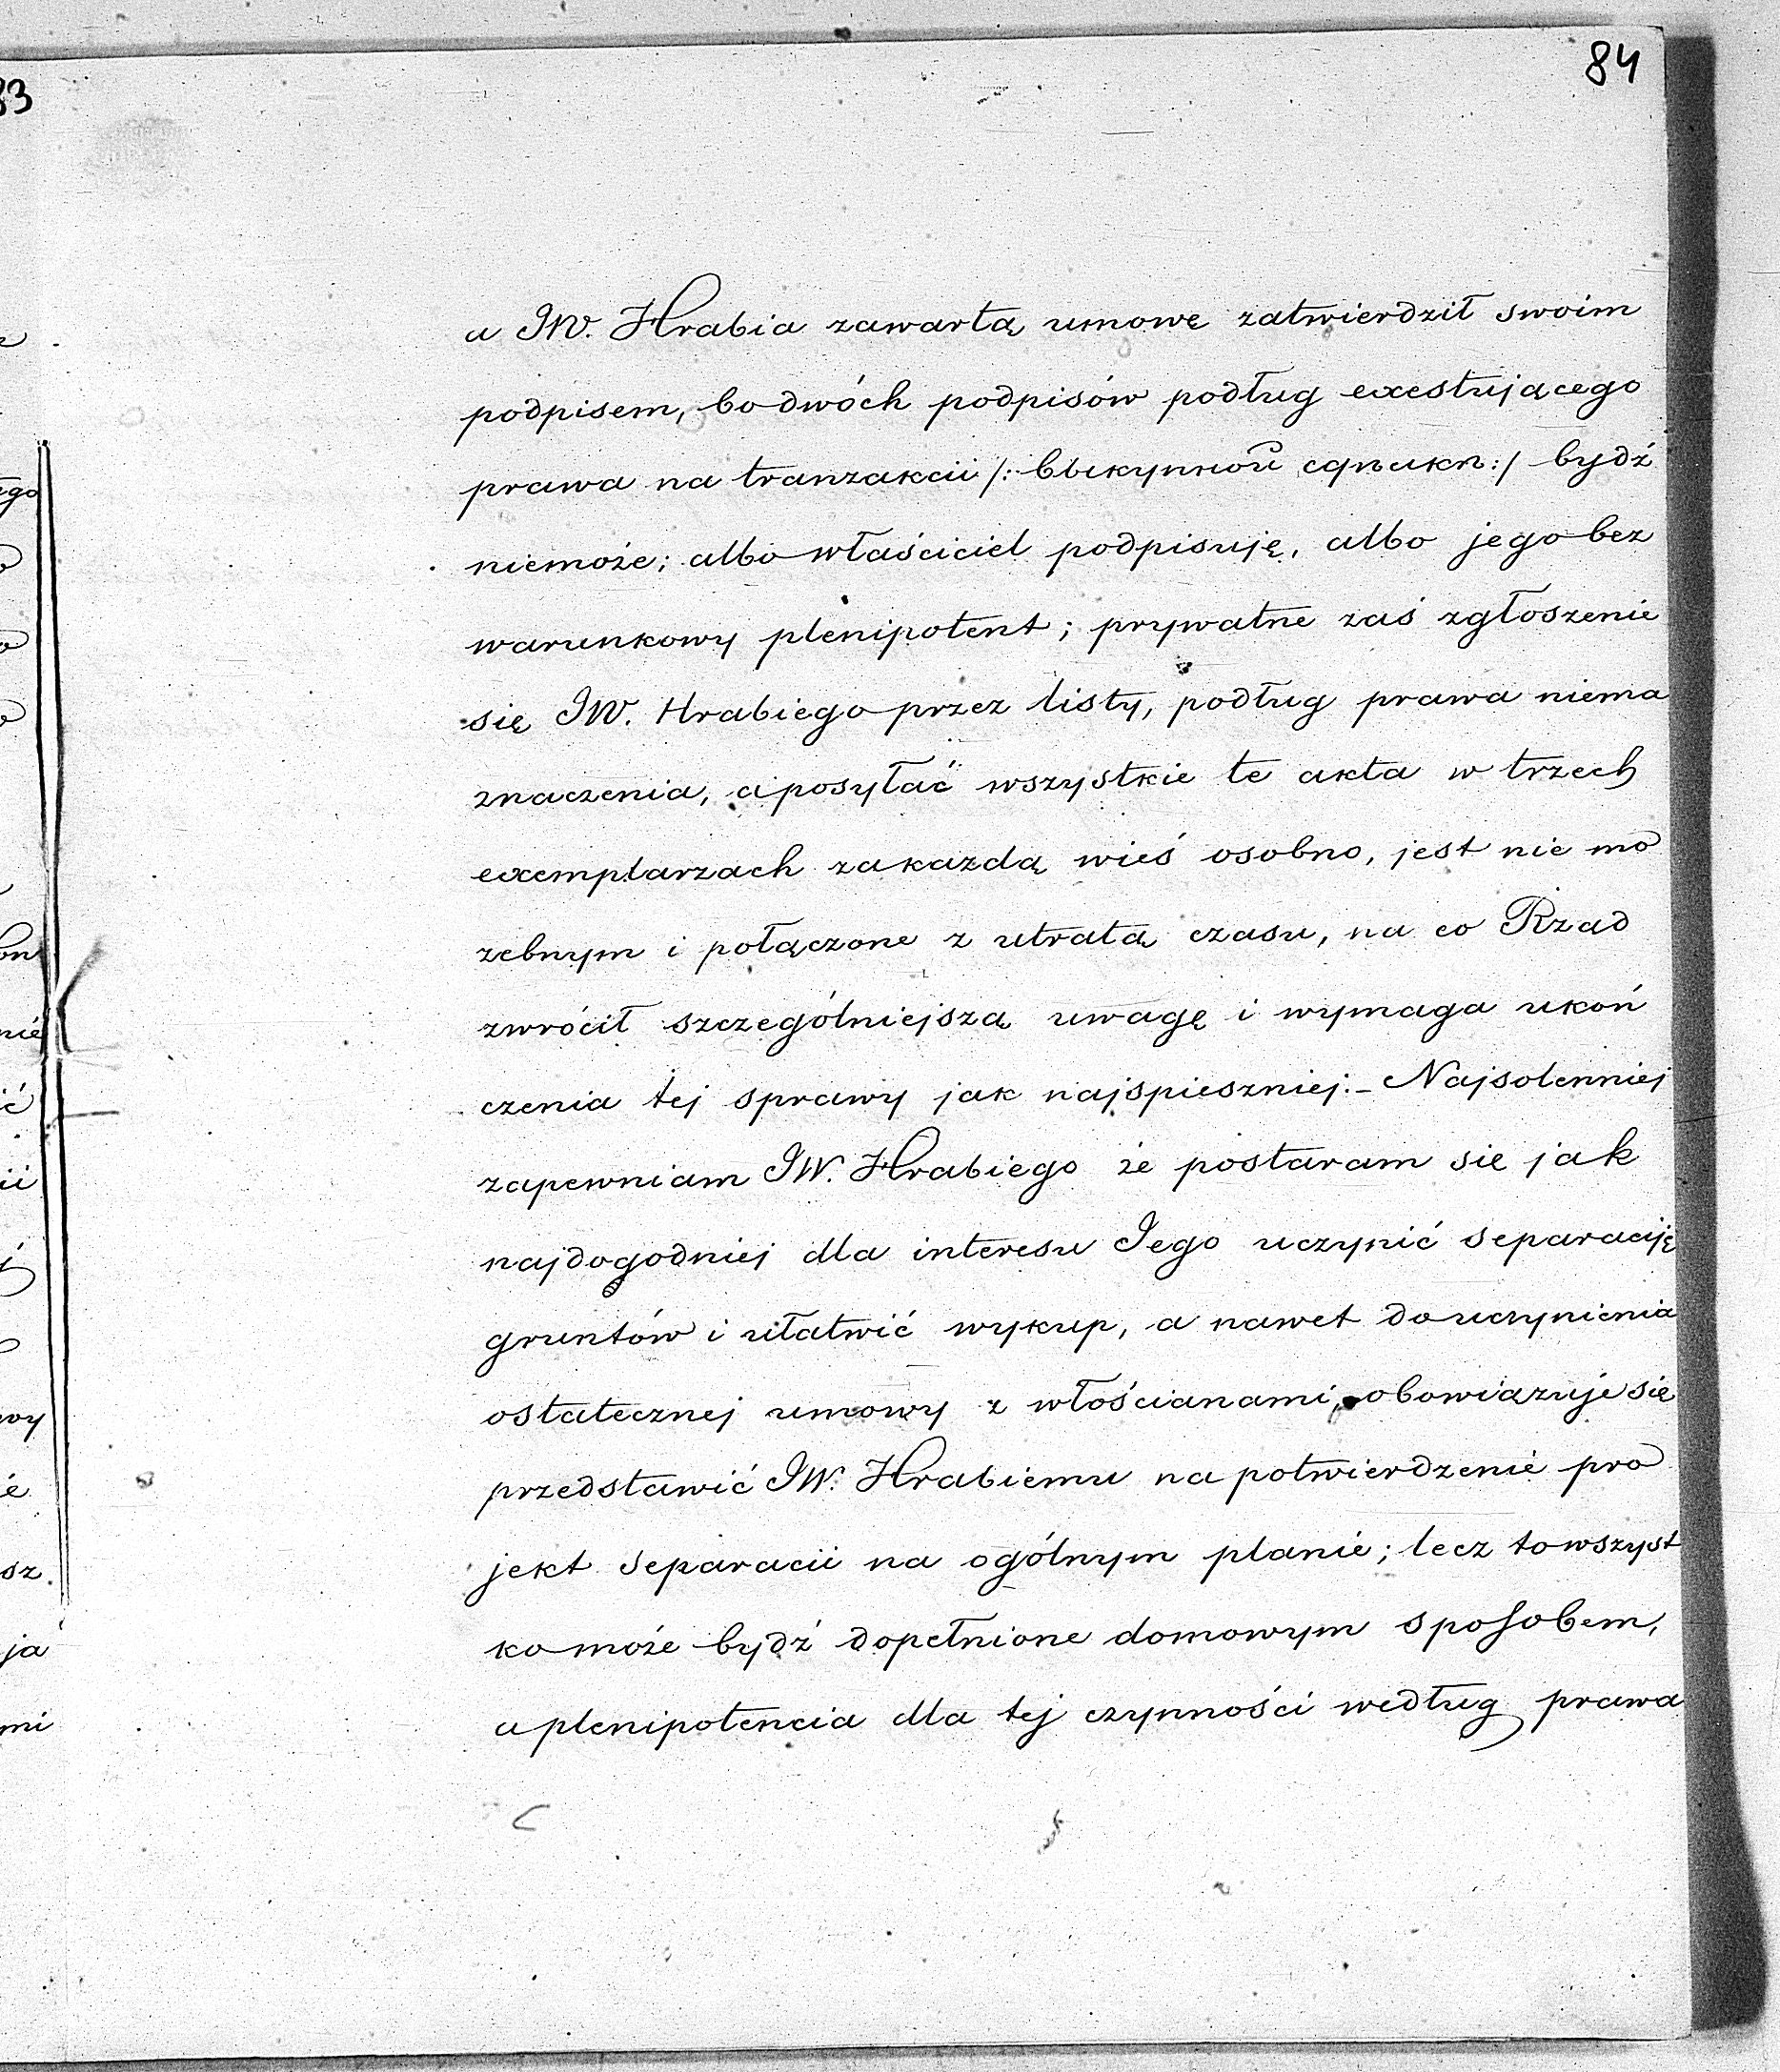 84
83
a JW. Hrabia zawartą umowę zatwierdził swoim
podpisem, bo dwóch podpisów podług exestującego
prawa na tranzakcii /: выкупной сдѣлки :/ bydź
niemoże; albo właściciel podpisuję, albo jego bez
warunkowy plenipotent; prywatne zaś zgłoszenie
się JW. Hrabiego przez listy, podług prawa niema
znaczenia, a posyłać wszystkie te akta w trzech
exemplarzach za kazdą wieś osobno, jest nie mo
zebnym i połączone z utratą czasu, na co Rzad
zwrócił szczególniejszą uwagę i wymaga ukoń
czenia tej sprawy jak najspieszniej:- Najsolenniej
zapewniam JW. Hrabiego że postaram się jak
najdogodniej dla interesu Jego uczynić separaciję
gruntów i ułatwić wykup, a nawet do uczynienia
ostatecznej umowy z włościanami, obowiązuje się
przedstawić JW. Hrabiemu na potwierdzenie pro
jekt separacii na ogólnym planie; lecz to wszyst
ko może bydź dopełnione domowym sposobem,
a plenipotencia dla tej czynności według prawa